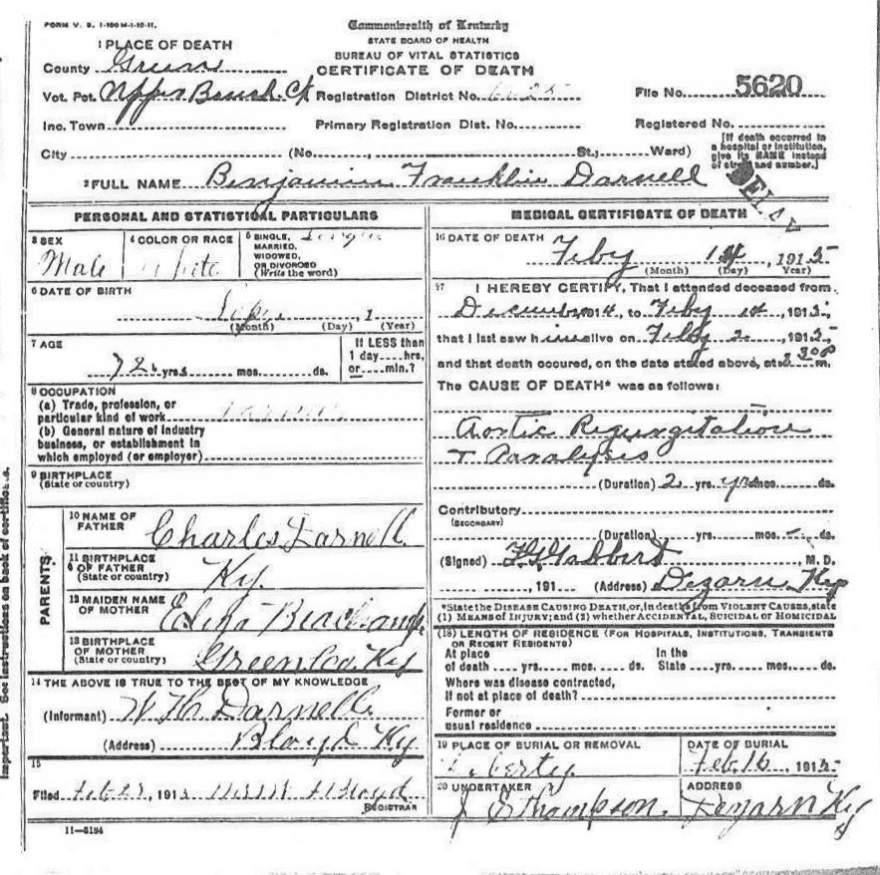 FORM V. S. 1-100M-1-10-11.
Commonwealth of Kentucky
STATE BOARD OF HEALTH
BUREAU OF VITAL STATISTICS
CERTIFICATE OF DEATH
1 PLACE OF DEATH
County Green
Vot. Pct. Upper Brush Ck Registration District No. File No. 5620
Inc. Town Primary Registration Dist. No. Registered No.
City (No. , St.; Ward) [If death occurred in a hospital or institution, give its NAME instead of street and number.]
2 FULL NAME Benjamin Franklin Darnell
PERSONAL AND STATISTICAL PARTICULARS
3 SEX Male
4 COLOR OR RACE White
5 SINGLE, MARRIED, WIDOWED, OR DIVORCED (Write the word) Single
6 DATE OF BIRTH
(Month) (Day) (Year)
7 AGE
72 yrs. mos. ds.
If LESS than 1 day hrs. or min.?
8 OCCUPATION
(a) Trade, profession, or
particular kind of work Farmer
(b) General nature of industry
business, or establishment in
which employed (or employer)
9 BIRTHPLACE
(State or country)
PARENTS
10 NAME OF FATHER Charles Darnell
11 BIRTHPLACE OF FATHER (State or country) Ky.
12 MAIDEN NAME OF MOTHER
13 BIRTHPLACE OF MOTHER (State or country) Green Co. Ky
14 THE ABOVE IS TRUE TO THE BEST OF MY KNOWLEDGE
(Informant) W H Darnell
(Address) Bloyd Ky
15
Filed , 191
REGISTRAR
11—5184
MEDICAL CERTIFICATE OF DEATH
16 DATE OF DEATH Feby 14, 1915
(Month) (Day) Year)
17 I HEREBY CERTIFY, That I attended deceased from
December 1914, to Feby 14, 1915,
that I last saw him alive on Feby 2, 1915
and that death occured, on the date stated above, at m.
The CAUSE OF DEATH* was as follows:
Aortic Regurgitation
+ Paralysis
(Duration) 2 yrs. mos. ds.
Contributory
(SECONDARY)
(Duration) yrs. mos. ds.
(Signed) M. D.
, 191 (Address) Dezarn Ky
*State the DISEASE CAUSING DEATH, or, in deaths from VIOLENT CAUSES, state
(1) MEANS OF INJURY; and (2) whether ACCIDENTAL, SUICIDAL or HOMICIDAL
(18) LENGTH OF RESIDENCE (FOR HOSPITALS, INSTITUTIONS, TRANSIENTS
OR RECENT RESIDENTS)
At place In the
of death yrs. mos. ds. State yrs. mos. ds.
Where was disease contracted,
if not at place of death?
Former or
usual residence
19 PLACE OF BURIAL OR REMOVAL DATE OF BURIAL
Liberty Feb. 16, 1915
20 UNDERTAKER ADDRESS
J S Thompson. Dezarn Ky
Important. See instructions on back of certificate.